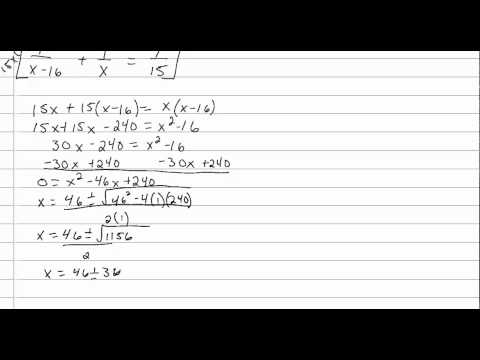 15x[1/(x-16) + 1/x = 1/15]
15x + 15(x-16) = x(x-16)
15x+15x -240 = x²-16
30x -240 = x²-16
-30x +240 -30x +240
0 = x² -46x +240
x = 46 ± √46² -4(1)(240)
2(1)
x = 46 ± √1156
2
x = 46 ± 36